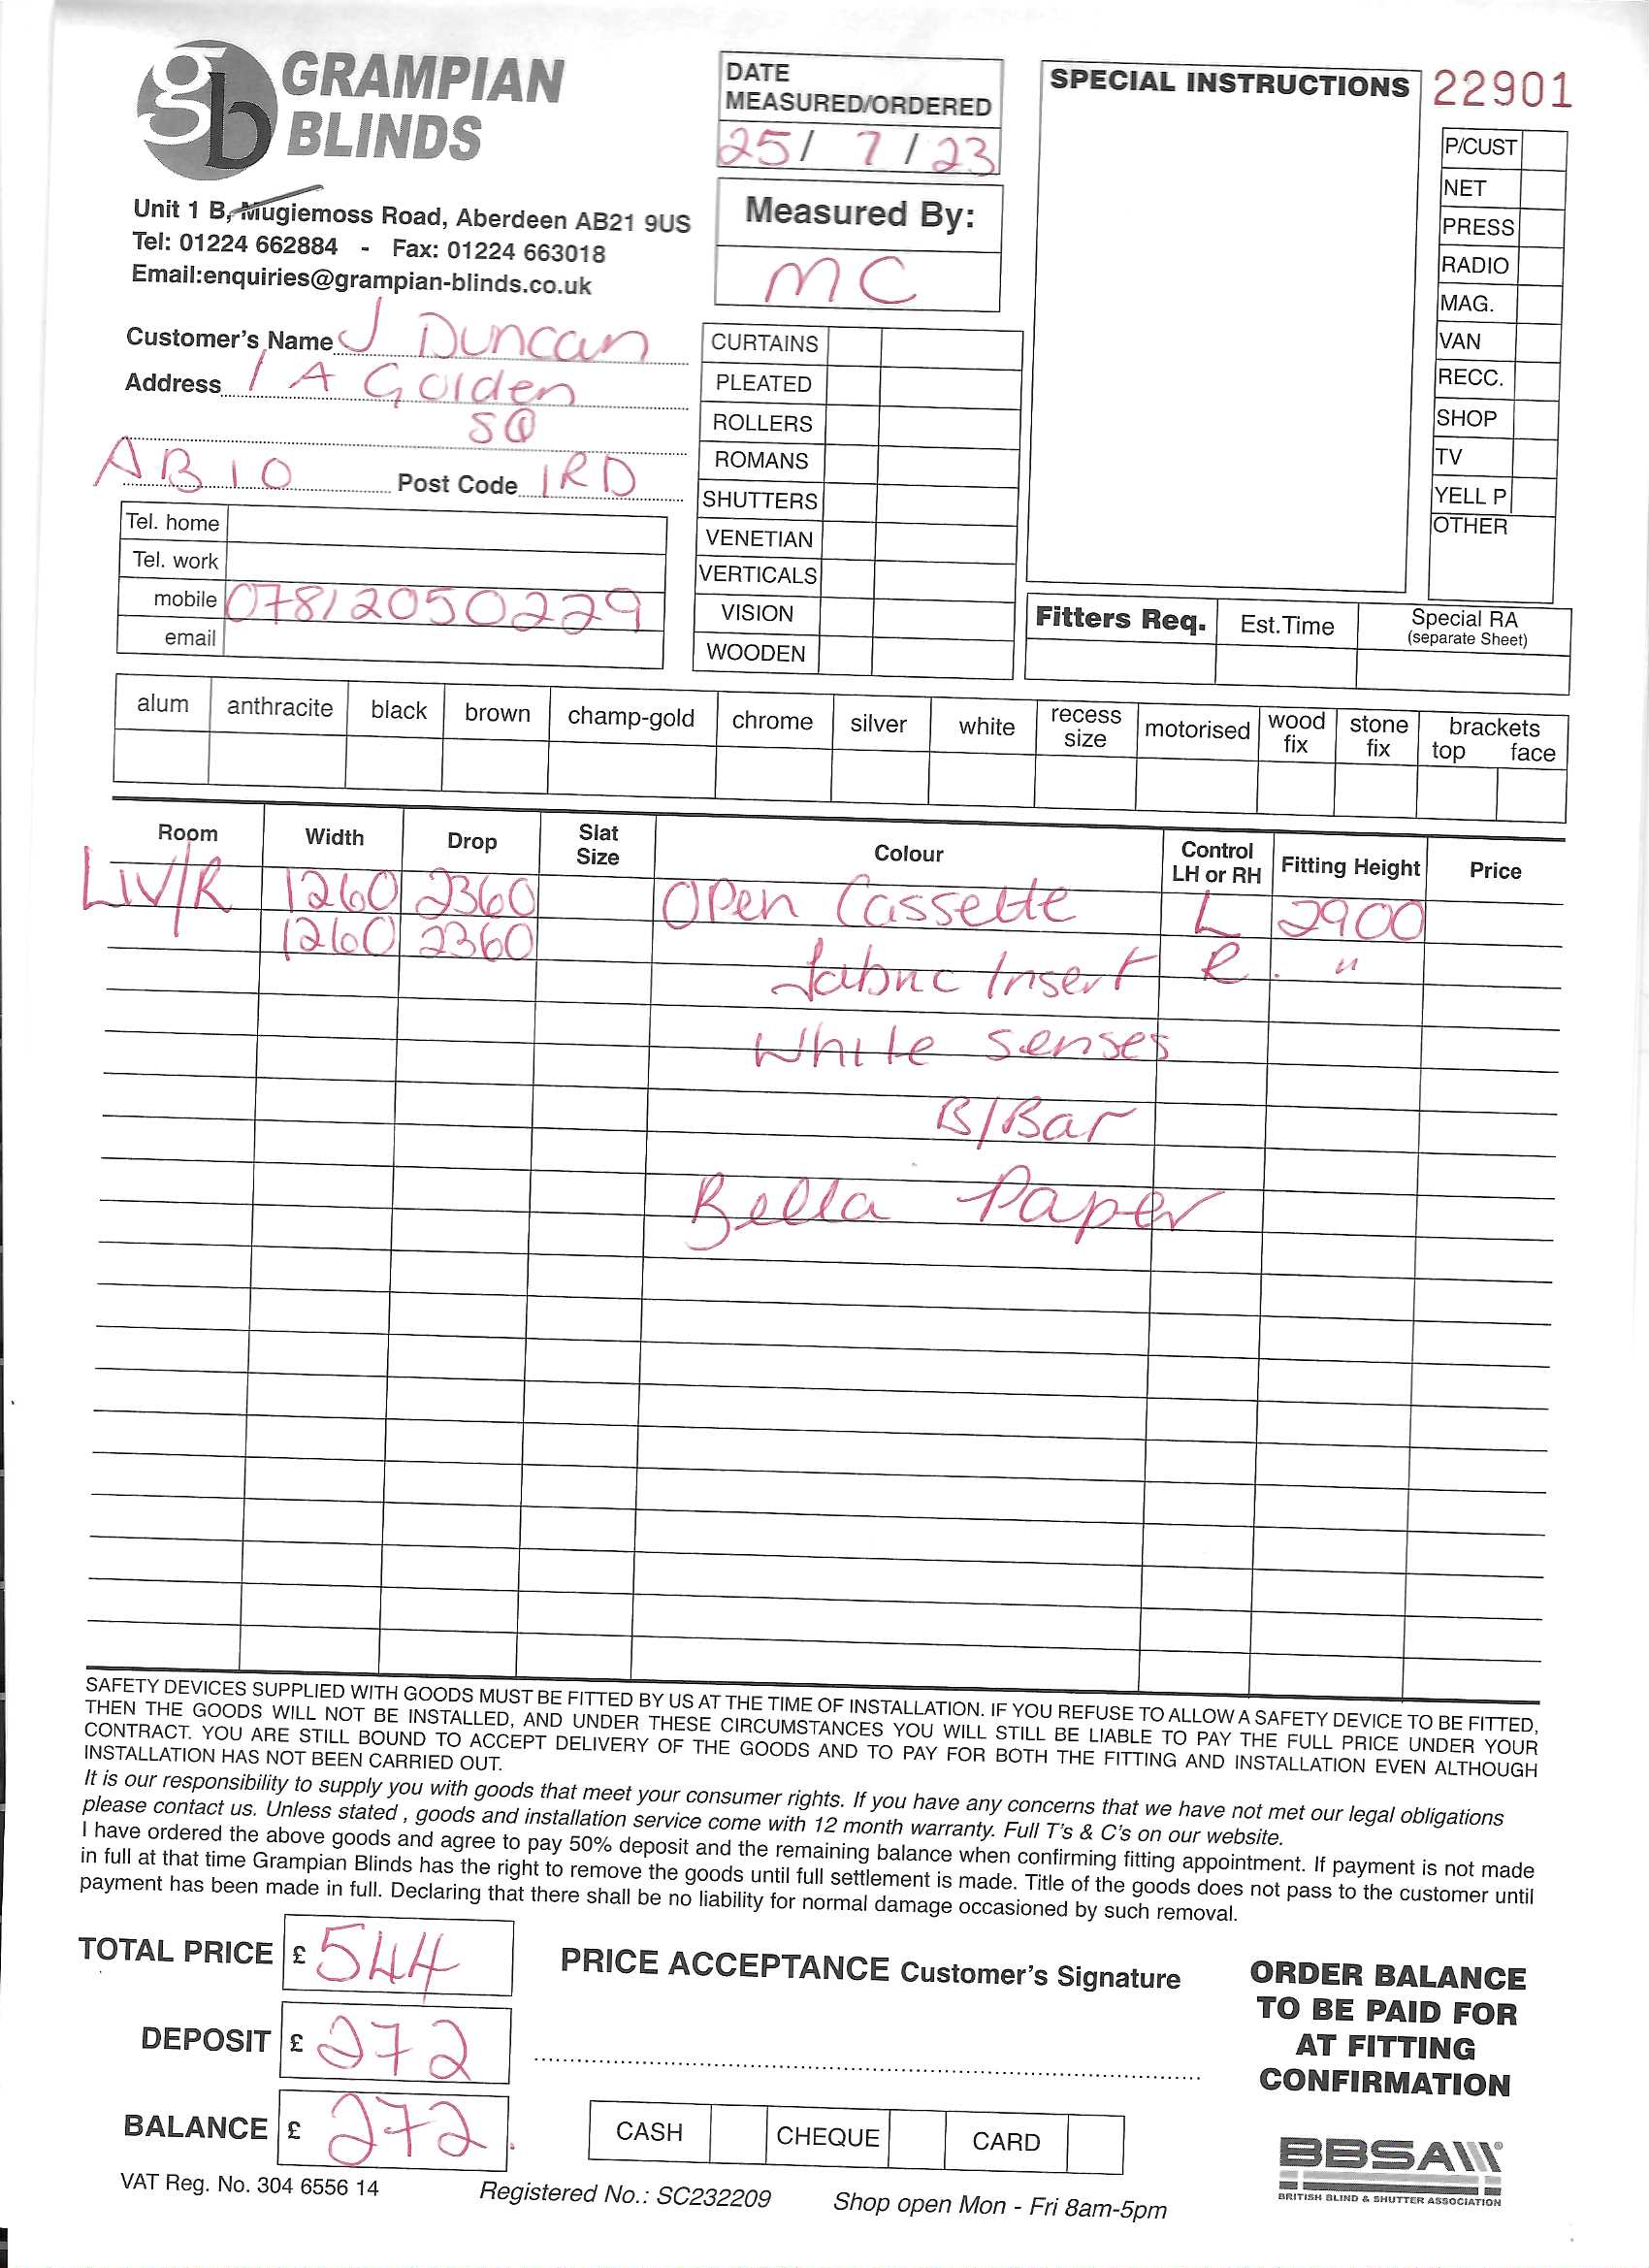 gb GRAMPIAN
BLINDS
Unit 1 B, Mugiemoss Road, Aberdeen AB21 9US
Tel: 01224 662884 - Fax: 01224 663018
Email:enquiries@grampian-blinds.co.uk
DATE
MEASURED/ORDERED
25/ 7 / 23
Measured By:
MC
SPECIAL INSTRUCTIONS
22901
P/CUST
NET
PRESS
RADIO
MAG.
VAN
RECC.
SHOP
TV
YELL P
OTHER
Customer's Name J Duncan
Address 1 A Golden
SQ
AB10 Post Code 1RD
Tel. home
Tel. work
mobile 07812050229
email
CURTAINS
PLEATED
ROLLERS
ROMANS
SHUTTERS
VENETIAN
VERTICALS
VISION
WOODEN
Fitters Req. Est.Time Special RA
(separate Sheet)
alum anthracite black brown champ-gold chrome silver white recess size motorised wood fix stone fix brackets top face
Room Width Drop Slat Size Colour Control LH or RH Fitting Height Price
LIV/R 1260 2360 Open Cassette L 2900
1260 2360 fabric Insert R . "
White senses
B/Bar
Bella Paper
SAFETY DEVICES SUPPLIED WITH GOODS MUST BE FITTED BY US AT THE TIME OF INSTALLATION. IF YOU REFUSE TO ALLOW A SAFETY DEVICE TO BE FITTED,
THEN THE GOODS WILL NOT BE INSTALLED, AND UNDER THESE CIRCUMSTANCES YOU WILL STILL BE LIABLE TO PAY THE FULL PRICE UNDER YOUR
CONTRACT. YOU ARE STILL BOUND TO ACCEPT DELIVERY OF THE GOODS AND TO PAY FOR BOTH THE FITTING AND INSTALLATION EVEN ALTHOUGH
INSTALLATION HAS NOT BEEN CARRIED OUT.
It is our responsibility to supply you with goods that meet your consumer rights. If you have any concerns that we have not met our legal obligations
please contact us. Unless stated , goods and installation service come with 12 month warranty. Full T's & C's on our website.
I have ordered the above goods and agree to pay 50% deposit and the remaining balance when confirming fitting appointment. If payment is not made
in full at that time Grampian Blinds has the right to remove the goods until full settlement is made. Title of the goods does not pass to the customer until
payment has been made in full. Declaring that there shall be no liability for normal damage occasioned by such removal.
TOTAL PRICE £ 544
DEPOSIT £ 272
BALANCE £ 272.
PRICE ACCEPTANCE Customer's Signature
CASH CHEQUE CARD
ORDER BALANCE
TO BE PAID FOR
AT FITTING
CONFIRMATION
BBSA
BRITISH BLIND & SHUTTER ASSOCIATION
VAT Reg. No. 304 6556 14 Registered No.: SC232209 Shop open Mon - Fri 8am-5pm